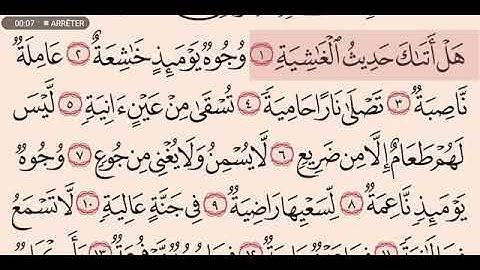 00:07 ■ ARRÊTER
هَلْ أَتَىٰكَ حَدِيثُ ٱلْغَٰشِيَةِ ١ وُجُوهٌ يَوْمَئِذٍ خَٰشِعَةٌ ٢ عَامِلَةٌ
نَّاصِبَةٌ ٣ تَصْلَىٰ نَارًا حَامِيَةً ٤ تُسْقَىٰ مِنْ عَيْنٍ ءَانِيَةٍ ٥ لَّيْسَ
لَهُمْ طَعَامٌ إِلَّا مِن ضَرِيعٍ ٦ لَّا يُسْمِنُ وَلَا يُغْنِى مِن جُوعٍ ٧ وُجُوهٌ
يَوْمَئِذٍ نَّاعِمَةٌ ٨ لِّسَعْيِهَا رَاضِيَةٌ ٩ فِى جَنَّةٍ عَالِيَةٍ ١٠ لَّا تَسْمَعُ